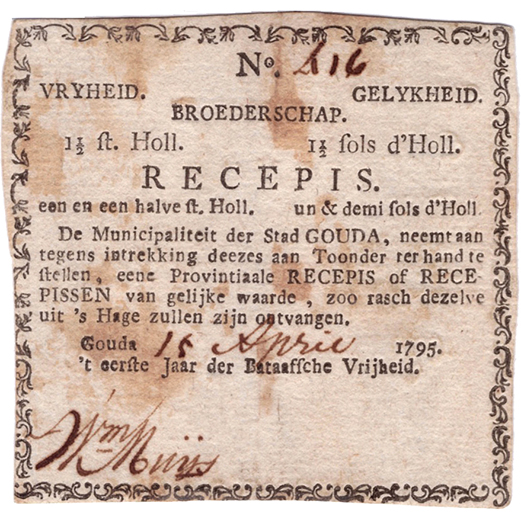 No. 216
VRYHEID. GELYKHEID.
BROEDERSCHAP.
1½ ſt. Holl. 1½ ſols d'Holl.
RECEPIS.
een en een halve ſt. Holl. un & demi ſols d'Holl.
De Municipaliteit der Stad GOUDA, neemt aan
tegens intrekking deezes aan Toonder ter hand te
ſtellen, eene Provintiaale RECEPIS of RECE-
PISSEN van gelijke waarde, zoo rasch dezelve
uit 's Hage zullen zijn ontvangen.
Gouda 15 April 1795.
't eerſte Jaar der Bataaffche Vrijheid.
Wm Muijs